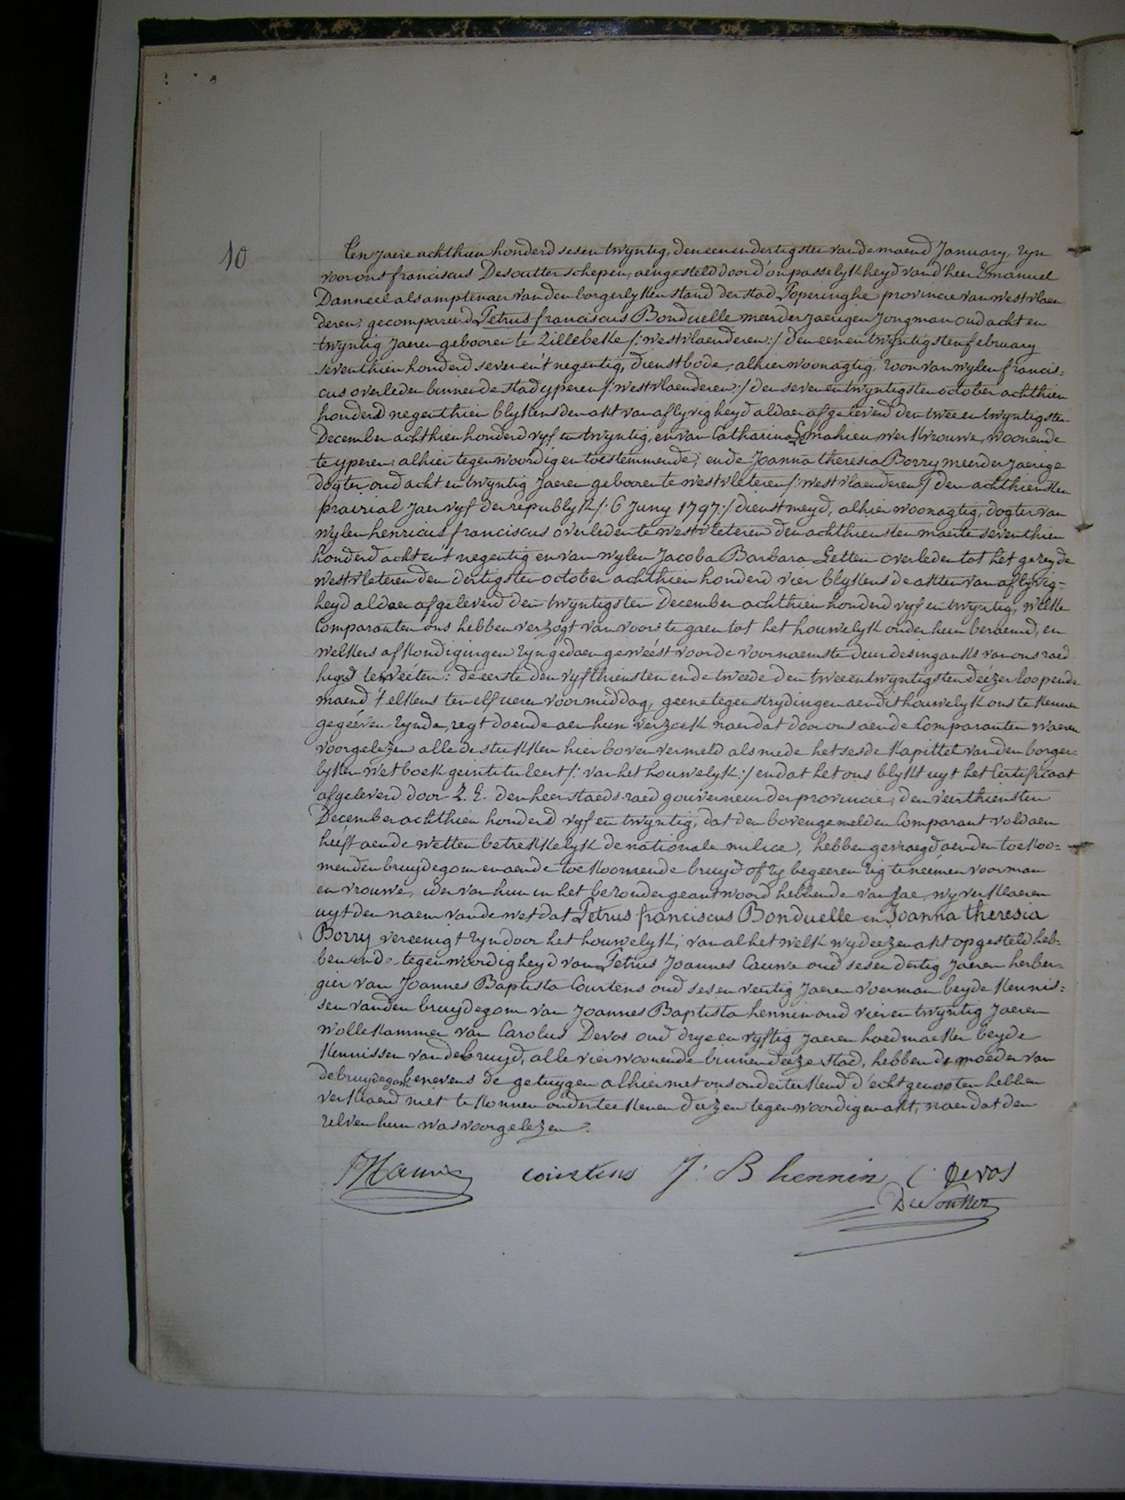 10
Ten jaere achthien honderd sesen twyntig, den eenendertigsten van de maend January, zyn
voor ons franciscus Desoutter schepen, aengesteld door d'onpasselykheyd van d'heer Emanuel
Danneel als amptenaer van den borgerlyken stand der stad Poperinghe provincie van westvlaen
deren; gecompareerd Petrus franciscus Bonduelle meerderjaerigen Jongman oud acht en
twyntig Jaeren gebooren te Zillebeke /: westvlaenderen :/ den eenentwyntigsten february
seventhien honderd seven en't negentig, dienstbode, alhier woonagtig, zoon van wylen francis-
cus overleden binnen de stad yperen /: westvlaenderen :/ den sevenentwyntigsten october achthien
honderd negenthien blykens den akt van aflyvigheyd aldaer afgeleverd den twee en twyntigsten
December achthien honderd vyf en twyntig, en van Catharina Lemahieu werkvrouwe, woonende
te yperen, alhier tegenwoordig en toestemmende; ende Joanna theresia Borry meerderjaerige
dogter, oud acht en twyntig Jaeren gebooren te westvleteren /: westvlaenderen :/ den achthiensten
prairial Jaer vyf der republyk /: 6 Juny 1797 :/ dienstmeyd, alhier woonagtig, dogter van
wylen henricus franciscus overleden te westvleteren den achthiensten maerte seventhien
honderd acht en't negentig en van wylen Jacoba Barbara Letten overleden tot het gezeyde
westvleteren den dertigsten october achthien honderd vier blykens de akten van aflyvig-
heyd aldaer afgeleverd den twyntigsten December achthien honderd vyf en twyntig, welke
Comparanten ons hebben verzogt van voorts te gaen tot het houwelyk onder hun beraemd, en
welkers afkondigingen zyn gedaen geweést voor de voornaemste deur des ingangs van ons raed
huys te wéeten: de eerste den vyfthiensten ende tweede den tweeentwyntigsten deézer loopende
maend t'elkens ten elf ueren voormiddag, geene tegenstrydingen aen dit houwelyk ons te kennen
gegeéven zynde, regt doende aen hun verzoek naer dat door ons aen de Comparanten waeren
voorgelezen alle de stukken hier boven vermeld als mede het sesde kapittel van den borger
lyken wetboek geintituleert /: van het houwelyk :/ en dat het ons blykt uyt het Certificaat
afgeleverd door Z. E. den heer staeds-raed gouverneur der provincie, den veerthiensten
December achthien honderd vyf en twyntig, dat den bovengemelden Comparant voldaen
heéft aen de wetten betrekkelyk de nationale milice, hebben gevraegd aen den toekoo-
menden bruydegom en aen de toekoomende bruyd of zy begeeren zig te neémen voor man
en vrouwe, ider van hun in het bezonder geantwoord hebbende van Jae, wy verklaeren
uyt den naem van de wet dat Petrus franciscus Bonduelle en Joanna theresia
Borry vereenigt zyn door het houwelyk; van al het welk wy deezen akt opgesteld heb-
ben in de tegenwoordigheyd van Petrus Joannes Cauwe oud sesen dertig Jaeren herber-
gier van Joannes Baptista Courtens oud ses en veertig Jaeren voerman beyde kennis-
sen van den bruydegom van Joannes Baptista hennin oud vier en twyntig Jaeren
wollekammer van Carolus Devos oud drye en vyftig Jaeren hoedmaeker beyde
kennissen van de bruyd, alle vier woonende binnen deeze stad, hebben de moeder van
de bruydegom benevens de getuygen alhier met ons onderteekend d'echtgenooten hebben
verklaerd niet te konnen onderteekenen deézen tegenwoordigen akt, naer dat den
zelven hun was voorgelezen.
courtens J. B hennin C. Devos
DeSoutter